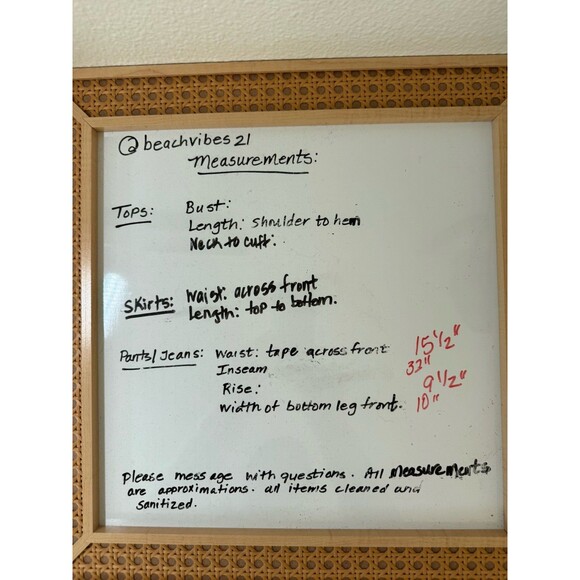 @beachvibes21
Measurements:
Tops: Bust:
Length: shoulder to hem
Neck to cuff:
Skirts: Waist: across front
Length: top to bottom.
Pants/Jeans: Waist: tape across front 15 1/2"
Inseam 33"
Rise: 9 1/2"
Width of bottom leg front. 10"
Please message with questions. All measurements
are approximations. all items cleaned and
sanitized.